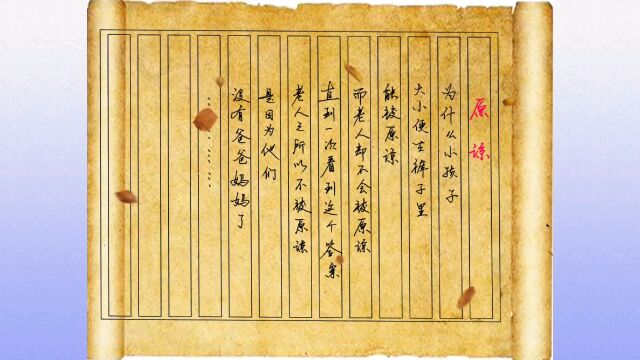 原谅
为什么小孩子
大小便在裤子里
能被原谅
而老人却不会被原谅
直到一次看到这个答案
老人之所以不被原谅
是因为他们
没有爸爸妈妈了
…………